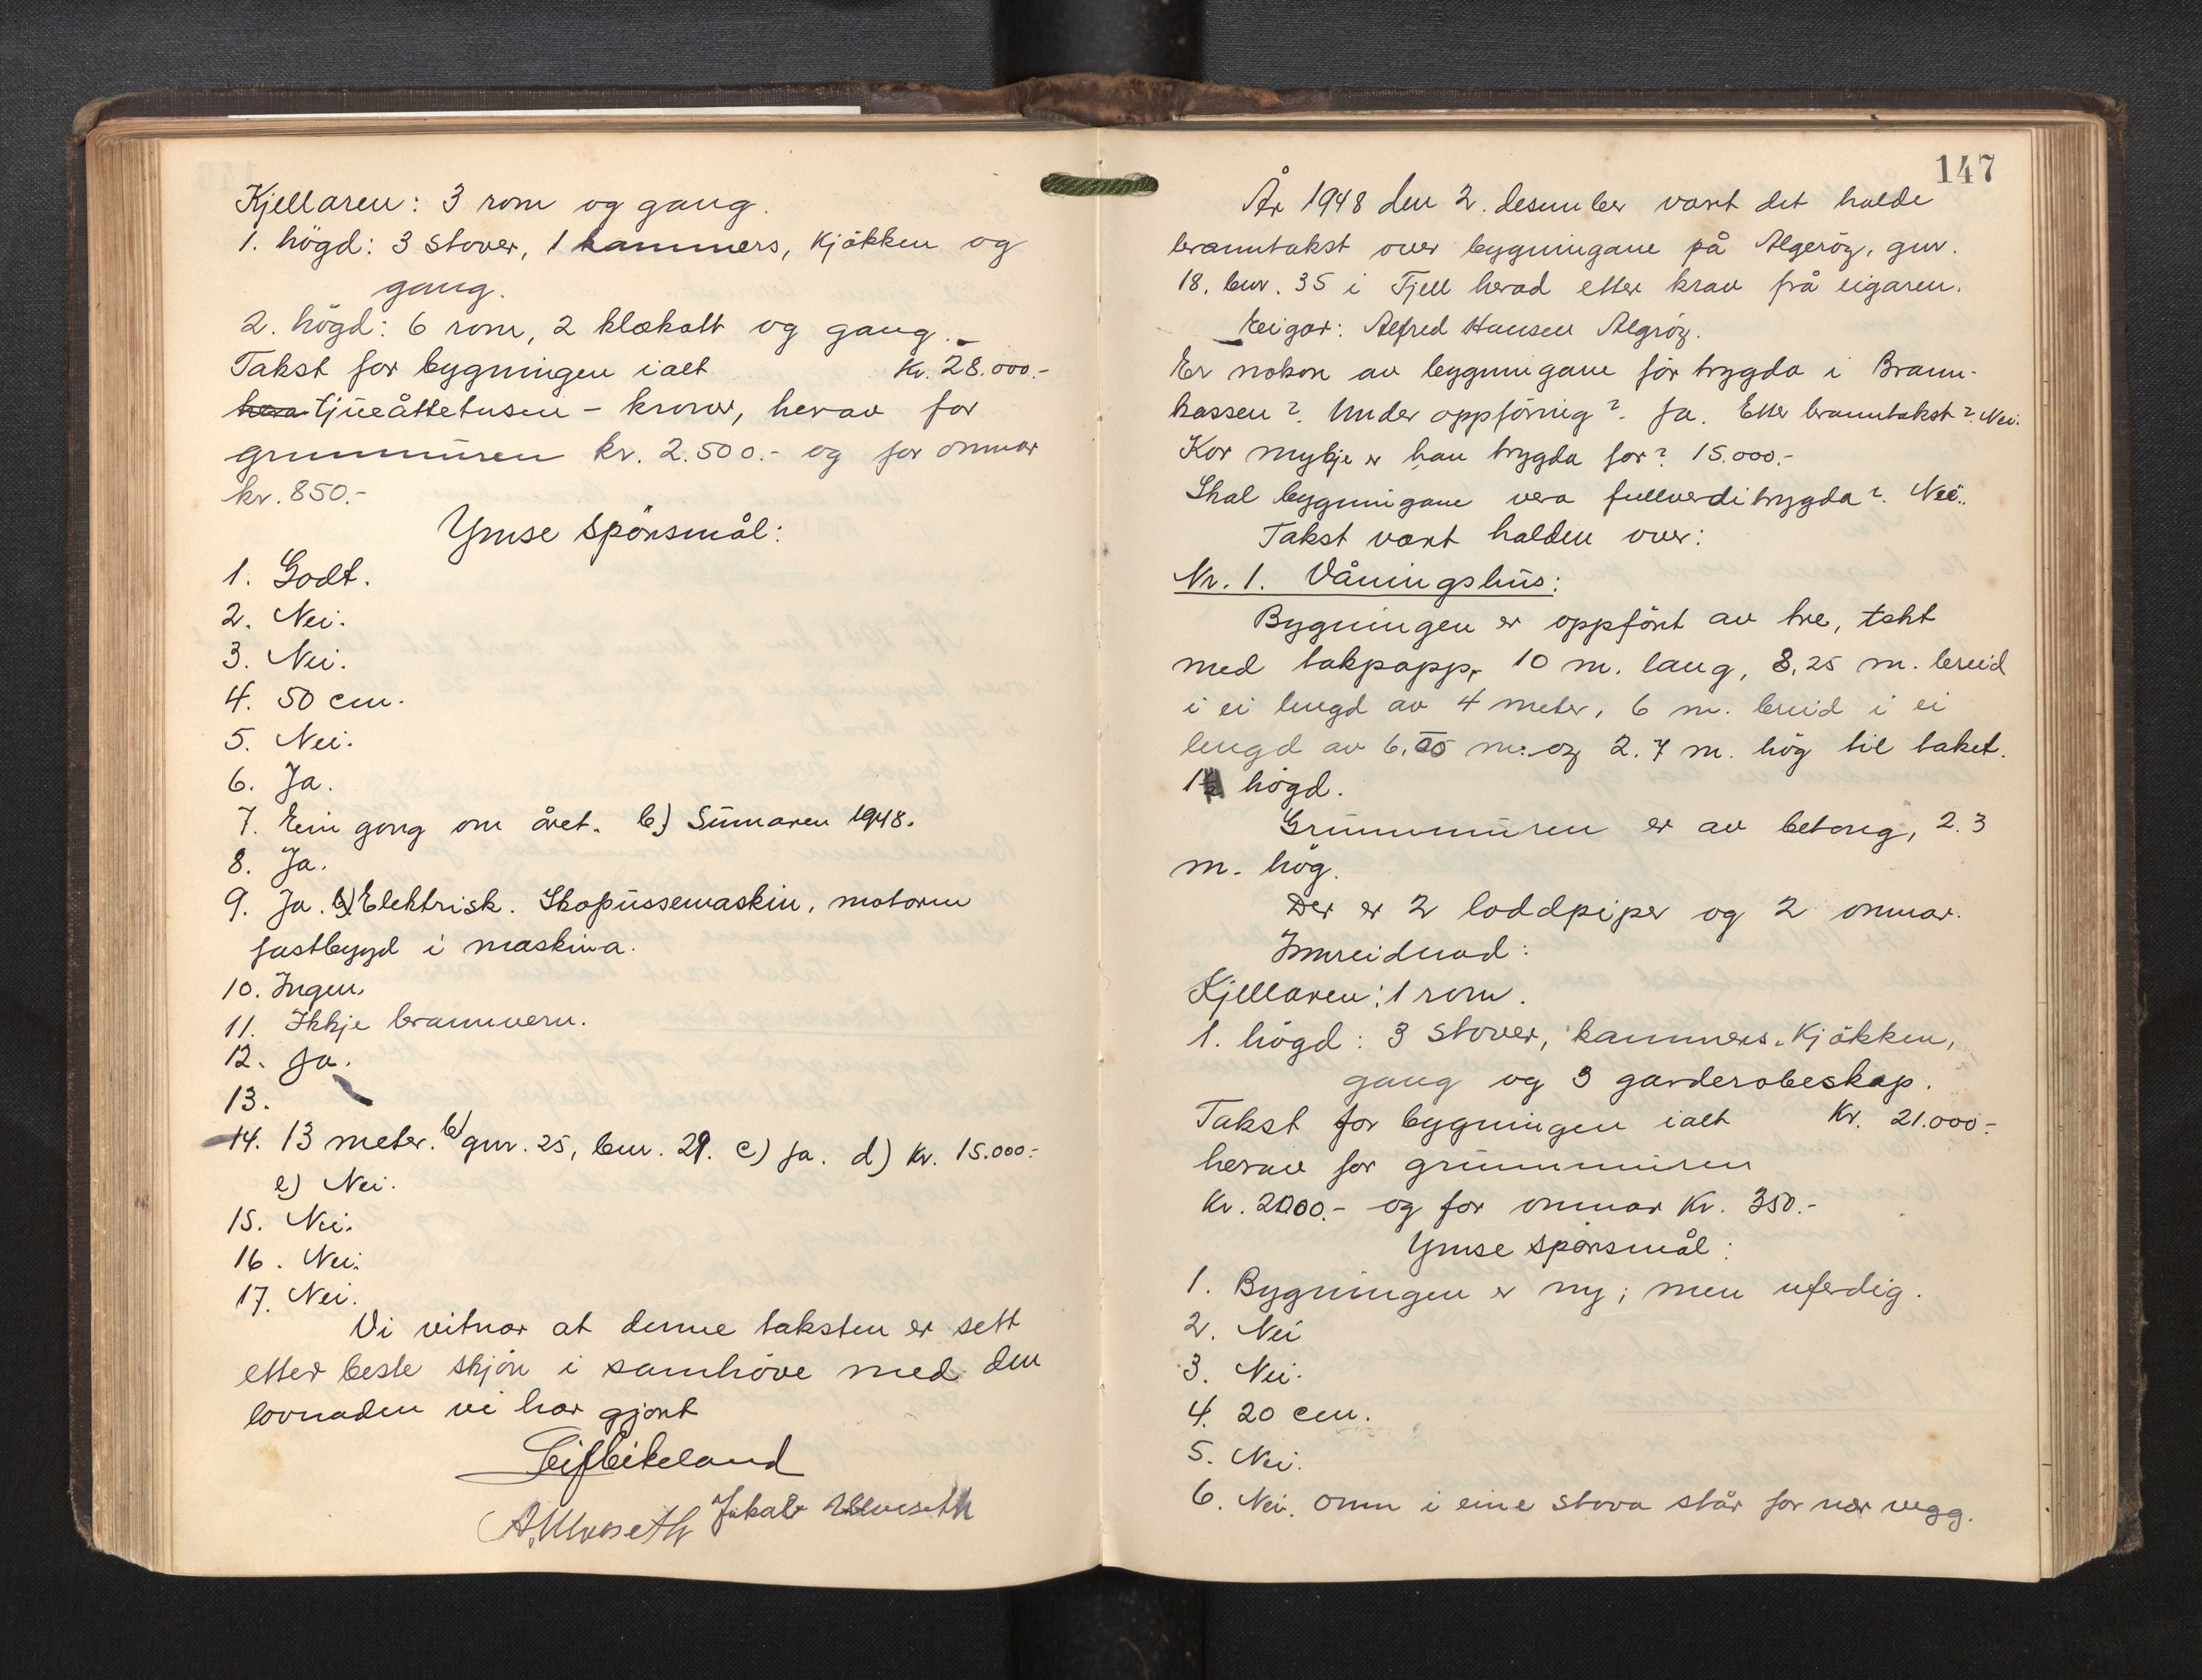 Kjellaren: 3 rom og gang.
1. högd: 3 stover, 1 kammers, kjökken og
gang.
2. högd: 6 rom, 2 klækott og gang.
Takst for bygningen ialt Kr. 28.000.-
tjueåttetusen - kronor, herav for
grunnmuren kr. 2.500.- og for omnar
kr. 850.-
Ymse spörsmål:
1. Godt.
2. Nei.
3. Nei.
4. 50 cm.
5. Nei.
6. Ja.
7. Ein gong om året. b) Sumaren 1948.
8. Ja.
9. Ja. b) Elektrisk. Skopussemaskin, motoren
fastbygd i maskina.
10. Ingen.
11. Ikkje brannvern.
12. Ja.
13.
14. 13 meter. b) gnr. 25, bnr. 29. c) Ja. d) Kr. 15.000.-
e) Nei.
15. Nei.
16. Nei.
17. Nei.
Vi vitnar at denne taksten er sett
etter beste skjön i samhöve med den
lovnaden vi har gjort
Leif Eikeland
A. Ulveseth Jakob Ulveseth
147
År 1948 den 2. desember vart det halde
branntakst over bygningane på Algeröy, gnr.
18, bnr. 35 i Fjell herad etter krav frå eigaren.
Eeigar: Alfred Hansen Algröy.
Er nokon av bygningane för trygda i Brann-
kassen? Under oppföring? Ja. Etter branntakst? Nei.
Kor mykje er han trygda for? 15.000.-
Skal bygningane vera fullverditrygda? Nei.
Takst vart halden over:
Nr. 1. Våningshus:
Bygningen er oppfört av tre, tekt
med takpapp, 10 m. lang, 8,25 m. breid
i ei lengd av 4 meter, 6 m. breid i ei
lengd av 6. m. og 2.7 m. hög til taket.
1 högd.
Grunnmuren er av betong, 2.3
m. hög.
Der er 2 loddpiper og 2 omnar.
Innreidnad:
Kjellaren: 1 rom.
1. högd: 3 stover, kammers, kjökken,
gang og 3 garderobeskap.
Takst for bygningen ialt Kr. 21.000.-
herav for grunnmuren
Kr. 2000.- og for omnar Kr. 350.-
Ymse spörsmål:
1. Bygningen er ny; men uferdig.
2. Nei
3. Nei.
4. 20 cm.
5. Nei.
6. Nei. Omn i eine stova står for nær vegg.